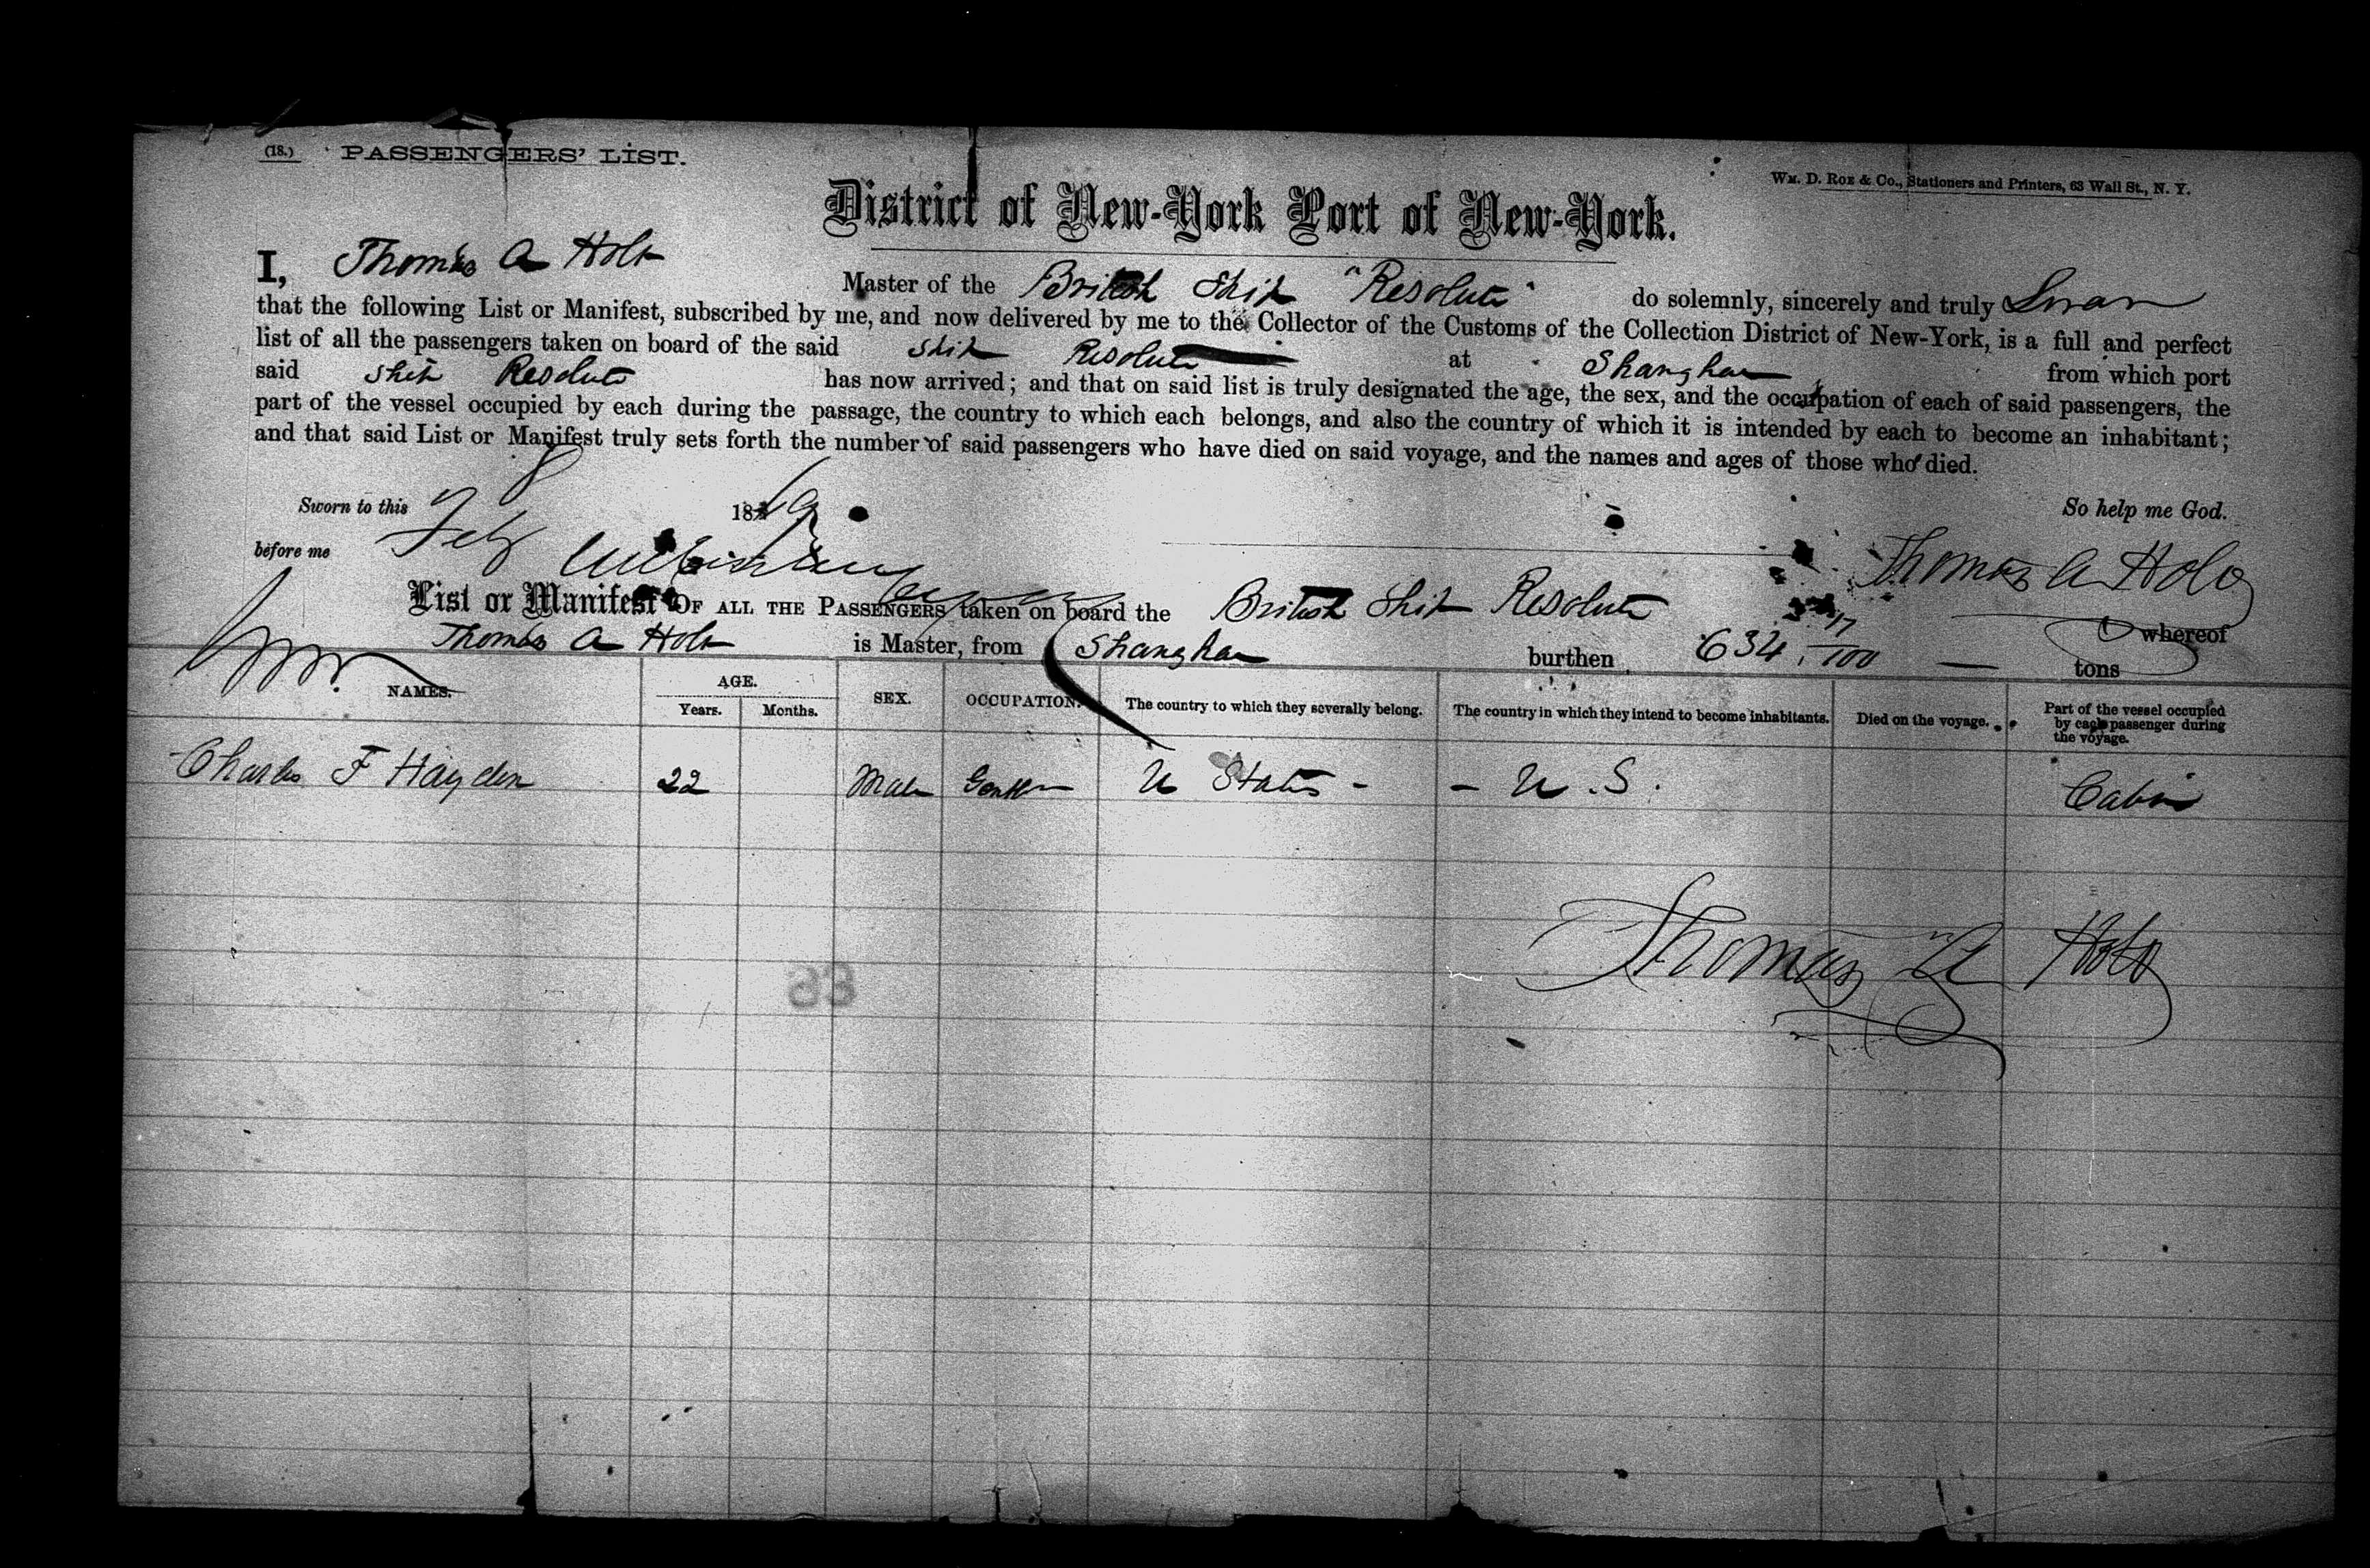 (18.) PASSENGERS' LIST.
Wm. D. Roe & Co., Stationers and Printers, 63 Wall St., N. Y.
District of New-York Port of New-York.
I, Thomas A Holt Master of the British Ship "Resolute" do solemnly, sincerely and truly Swear
that the following List or Manifest, subscribed by me, and now delivered by me to the Collector of the Customs of the Collection District of New-York, is a full and perfect
list of all the passengers taken on board of the said Ship Resolute at Shanghai from which port
said Ship Resolute has now arrived; and that on said list is truly designated the age, the sex, and the occupation of each of said passengers, the
part of the vessel occupied by each during the passage, the country to which each belongs, and also the country of which it is intended by each to become an inhabitant;
and that said List or Manifest truly sets forth the number of said passengers who have died on said voyage, and the names and ages of those who died.
Sworn to this 8 Feby 18 So help me God.
before me Thomas A Holt
List or Manifest OF ALL THE PASSENGERS taken on board the British Ship Resolute whereof
Thomas A Holt is Master, from Shanghai burthen 634 17/100 tons
NAMES. AGE. Years. Months. SEX. OCCUPATION. The country to which they severally belong. The country in which they intend to become inhabitants. Died on the voyage. Part of the vessel occupied by each passenger during the voyage.
Charles F Hayden 22 Male Gentn U States - - U.S. Cabin
Thomas A Holt